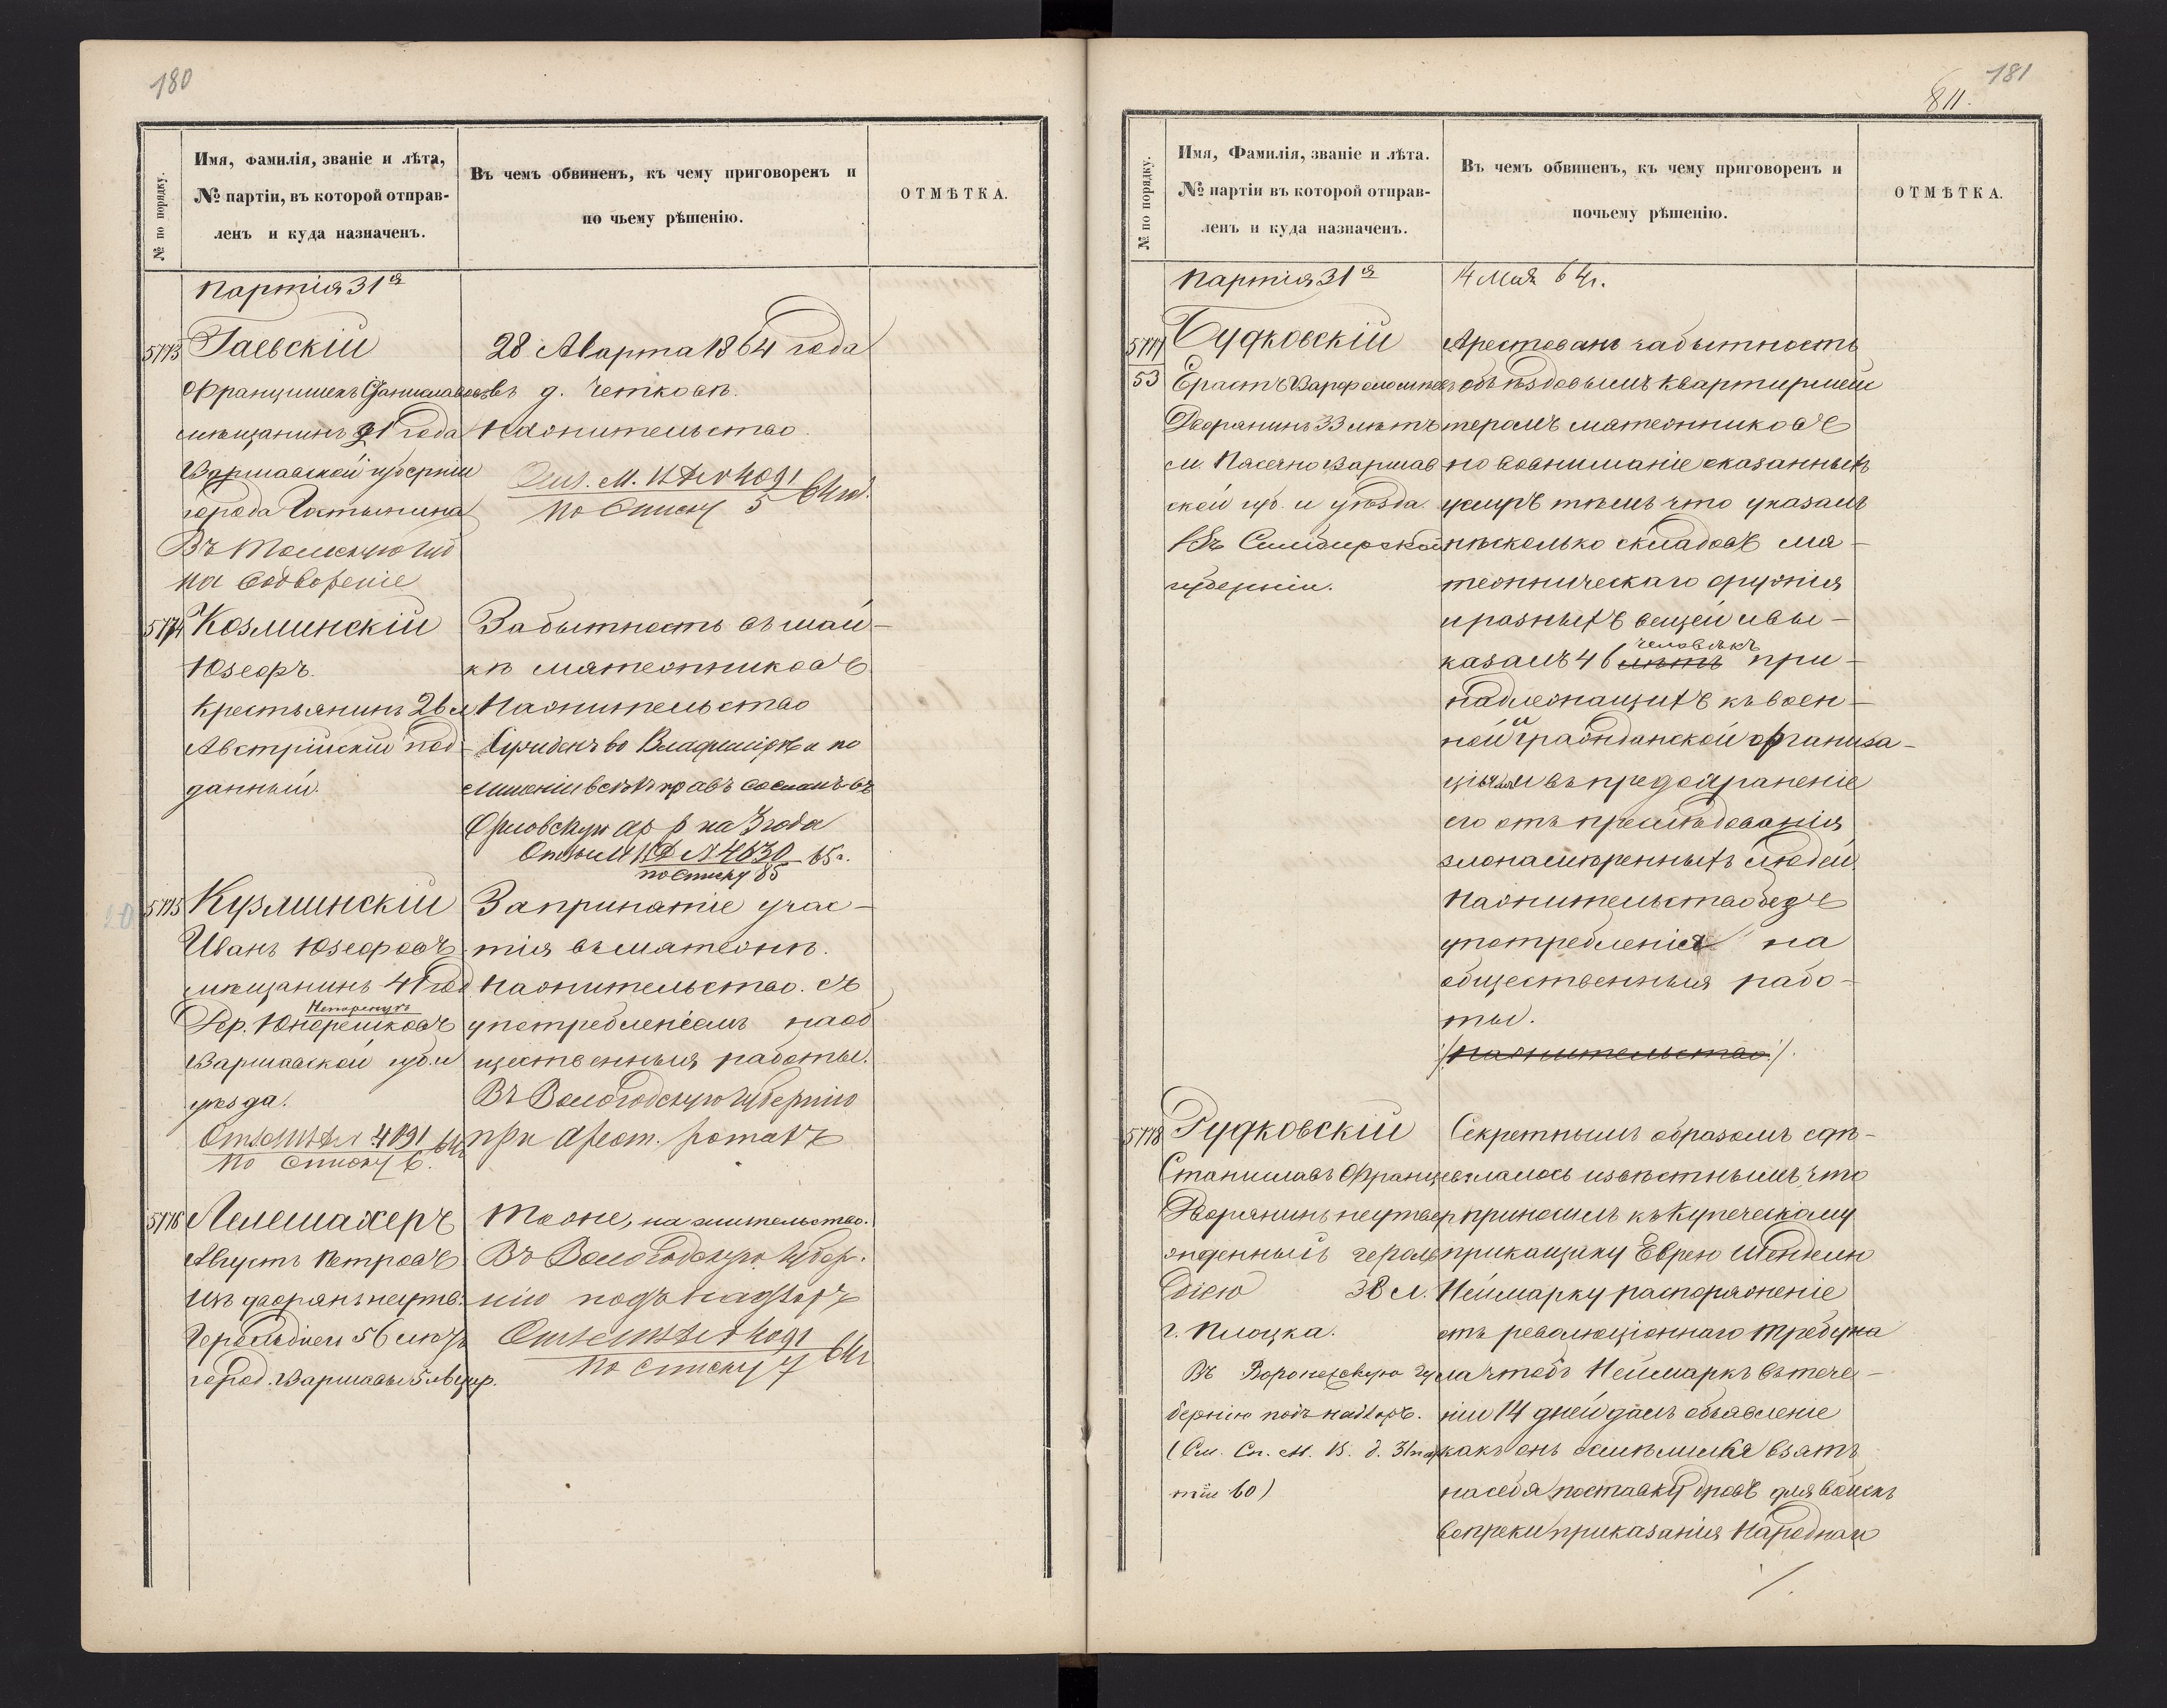 180
№ по порядку.
Имя, Фамилія, званіе и лѣта,
№ партіи, въ которой отправ-
ленъ и куда назначенъ.
Въ чемъ обвиненъ, къ чему приговоренъ и
по чьему рѣшенію.
ОТМѢТКА.
Партія 31я
5773
Гаевскій
Францишекъ Станиславовъ
мѣщанинъ 21 года
Варшавской губерніи
города Гостынина
Въ Томскую губ
на водвореніе
28 Марта 1864 года
въ д. Четковъ.
На жительство.
Отз. М. В. Д. № 4091 64 г.
По списку 5
5774
Козминскій
Юзефъ.
крестьянинъ 26 л
Австрійскій под-
данный.
За бытность въ шай-
кѣ мятежниковъ
На жительство
лишеніи всѣхъ правъ сосланъ въ
Орловскую ар р на 3 года
Отзыв М В Д № 4630 65 г.
по списку 85
5775
Кузминскій
Иванъ Юзефовъ
мѣщанинъ 41 год
Варшавской губ. и
уѣзда.
Отз. М В Д № 4091 64 г.
По списку 6.
За принятіе учас-
тія въ мятежѣ.
На жительство. съ
употребленіемъ на об
щественныя работы.
Въ Вологодскую губернію
при Арест. ротахъ
5776
Лелемахеръ
Августъ Петровъ
Изъ дворянъ неутв.
Герольдіею 56 лѣтъ
город. Варшавы 5го цир.
Тоже, на жительство.
Въ Вологодскую губер-
нію подъ надзоръ
Отз. М В Д № 4091 64 г
По списку 7
181
811.
№ по порядку.
Имя, Фамилія, званіе и лѣта.
№ партіи въ которой отправ-
ленъ и куда назначенъ.
Въ чемъ обвиненъ, къ чему приговоренъ и
почьему рѣшенію.
ОТМѢТКА.
Партія 31я
14 Мая 64 г.
5777
53
Будковскій
Ерастъ Варфоломѣевъ
Дворянинъ 33 лѣтъ
м. Пясечно Варшав
ской губ. и уѣзда.
Въ Симбирской
губерніи.
Арестованъ за бытность
объѣздовымъ квартирмей
теромъ мятежниковъ
но во вниманіе оказанныхъ
услугъ тѣмъ что указалъ
нѣсколько складовъ мя-
тежническаго оружія
и разныхъ вещей и вы-
казалъ 46 лѣтъ человѣкъ при-
надлежащихъ къ воен-
ной и гражданской организа-
ціямъ и въ предохраненіе
его отъ преслѣдованія
злонамѣренныхъ людей.
На жительство безъ
употребленія на
общественныя рабо-
ты.
/. на жительство ./.
5778
Рудковскій
Станиславъ Францевъ
Дворянинъ неутвер
жденный героль
діею 38 л.
г. Плоцка.
Въ Воронежскую гу
бернію подъ надзоръ.
(См. Сп. М. В. д. 31 пар
тіи 60)
Секретнымъ образомъ сдѣ-
лалось извѣстнымъ, что
приносилъ къ Купеческому
прикащику Еврею
Неймарку распоряженіе
отъ революціоннаго трибуна
ла чтобъ Неймаркъ въ тече-
ніи 14 дней далъ объявленіе
какъ онъ осмѣлился взять
на себя поставку дровъ для войскъ
вопреки приказанія Народнаго
/.